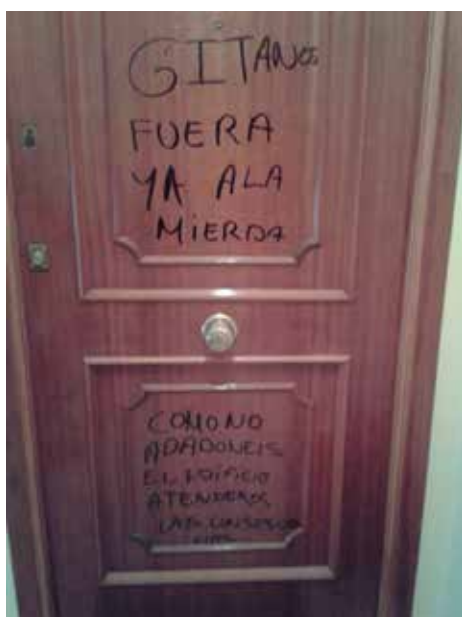 GITANOS
FUERA
YA ALA
MIERDA
COMO NO
ADADONEIS
EL EDIFICIO
ATENDEROS